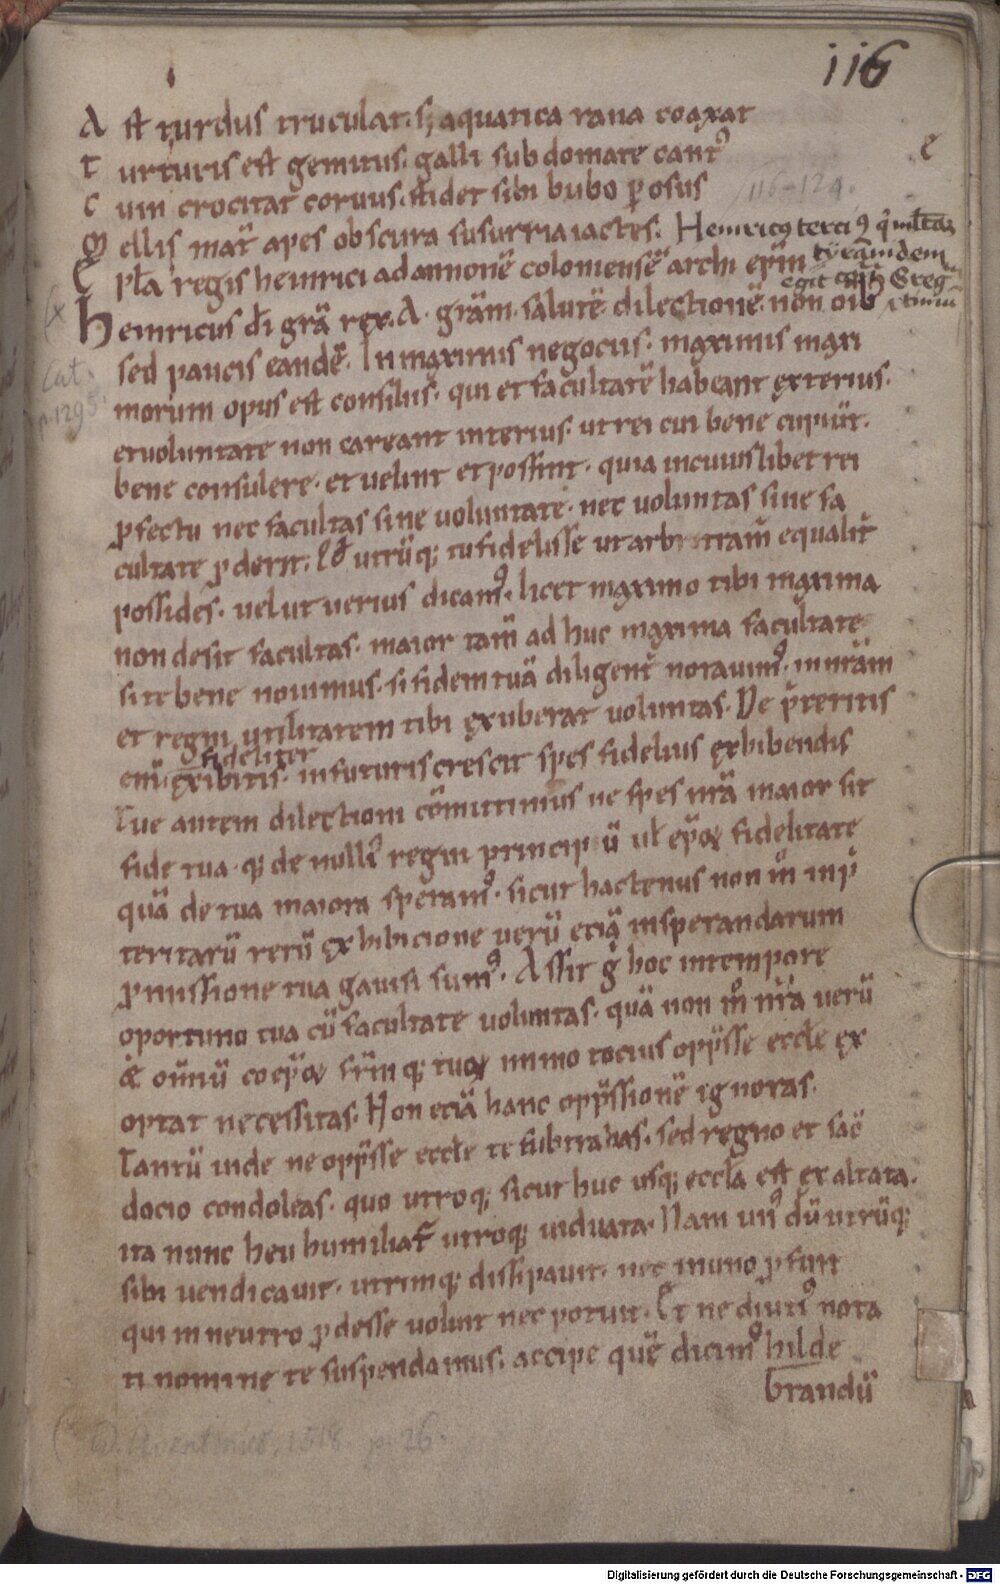 116
A st turdus truculat. s; aquatica rana coaxat
T urturis est gemitus. galli sub domate cantꝰ
e
C um crocitat coruus. stridet sibi bubo ꝑosus
116-124.
M ellis mat̄ apes obscura susurria iactes.
Henricꝰ terciꝰ
E pl̄a regis heinrici ad annonē coloniensē archi ep̄m
Heinricus dī grā rex. A. grām. salutē. dilectionē. non oīb
Cat.
p. 1295.
sed paucis eandē. In maximis negociis. maximis maxi
morum opus est consiliis. qui et facultatē habeant exterius.
et uoluntate non careant interius. ut rei cui bene cupiūt.
bene consulere. et uelint et possint. quia in cuius libet rei
ꝓfectu nec facultas sine uoluntate. nec uoluntas sine fa
cultate ꝓderit. Qd̄ utrūq; tu fidelisse ut arbitram̄ equalit̄
possides. uel ut uerius dicamꝰ. licet maximo tibi maxima
non desit facultas. maior tam̄ ad huc maxima facultate
si te bene nouimus. si fidem tuā diligent̄ notauimꝰ. in nrām
et regni utilitatem tibi exuberat uoluntas. De p̄teritis
fideliter
enī exibitis. in futuris crescit spes fidelius exhibendis
Tue autem dilectioni cōmittimus ne spes nrā maior sit
fide tua. q; de nulliꝰ regni principū ul̄ ep̄oꝝ fidelitate
quā de tua maiora speramꝰ. sicut hactenus non m̊ in p̄
teritarū rerū exhibicione uerū etiā insperandarum
ꝓmissione tua gauisi sumꝰ. Assit g̊ hoc in tempore
oportuno tua cū facultate uoluntas. quā non m̊ nrā uerū
& om̄iū coep̄oꝝ frm̄q; tuoꝝ immo tocius opp̄sse eccl̄e ex
optat necessitas. Non etiā hanc opp̄ssionē ignoras.
Tantū uide ne opp̄sse eccl̄e te subtrahas. sed regno et sac̄
docio condoleas. quo utroq; sicut huc usq; eccl̄a est exaltata.
ita nunc heu humiliat̄ utroq; uiduata. Nam unꝰ dū utrūq;
sibi uendicauit. utrimq; dissipauit. nec in uno ꝓfuit
qui in neutro ꝓdesse uoluit nec potuit. Et ne diutiꝰ nota
ti nomine te suspendamus. accipe quē dicimꝰ hilde
brandū
Aventinus, 1518. p. 26.
Digitalisierung gefördert durch die Deutsche Forschungsgemeinschaft - DFG